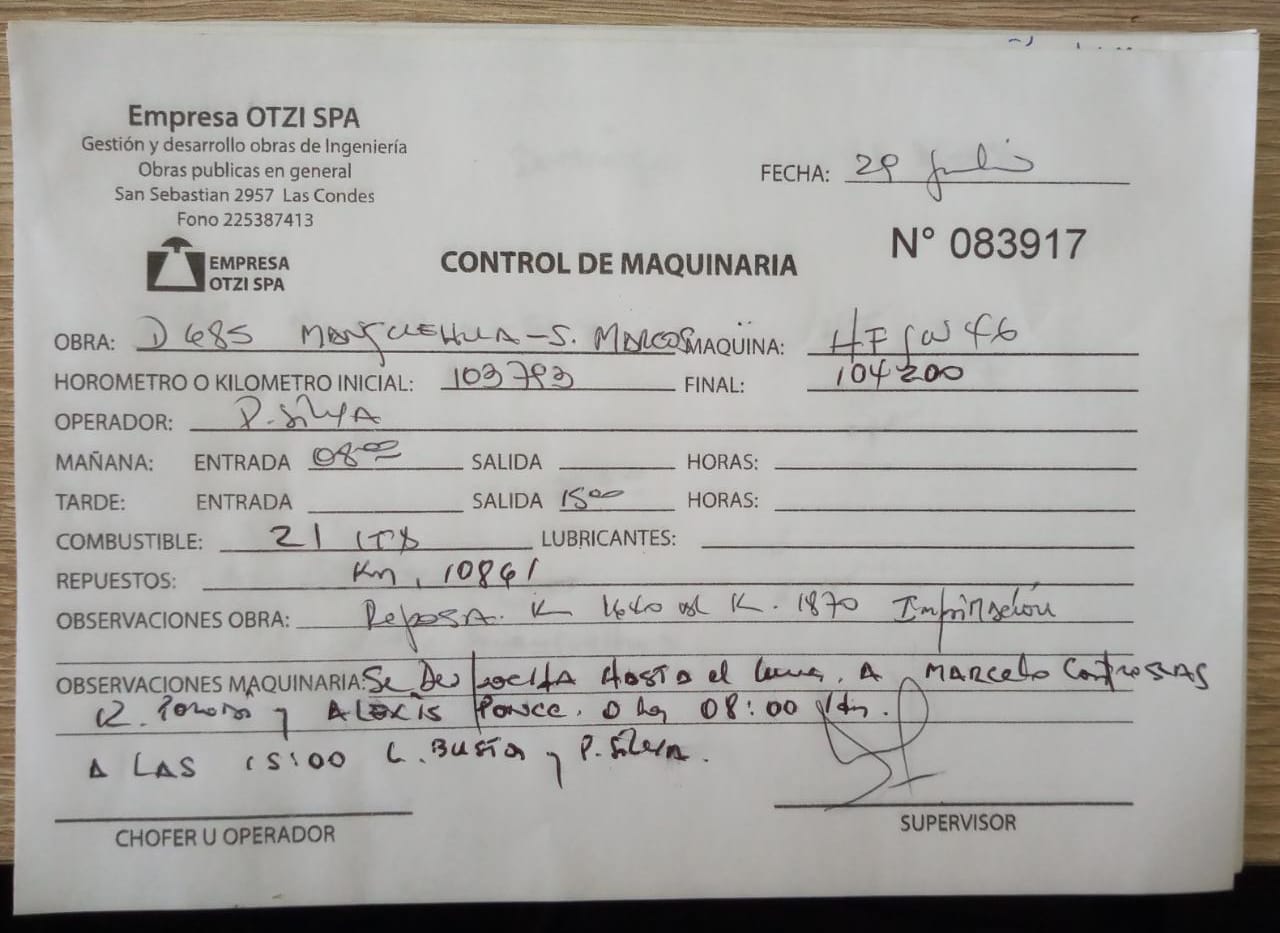 Empresa OTZI SPA
Gestión y desarrollo obras de Ingeniería
Obras publicas en general
San Sebastian 2957 Las Condes
Fono 225387413
EMPRESA
OTZI SPA
FECHA: 29 Julio
N° 083917
CONTROL DE MAQUINARIA
OBRA: D 685 MANQUEHUA-S. MARCOS MAQUINA: HF 46
HOROMETRO O KILOMETRO INICIAL: 103793 FINAL: 104200
OPERADOR: P. Silva
MAÑANA: ENTRADA 08:00 SALIDA HORAS:
TARDE: ENTRADA SALIDA 15:00 HORAS:
COMBUSTIBLE: 21 LTS LUBRICANTES:
REPUESTOS: Km. 10861
OBSERVACIONES OBRA: K 1640 al K. 1870 Imprimación
OBSERVACIONES MAQUINARIA: Se Hasta el A MARCELO Contreras
R. y ALEXIS Ponce. 08:00
A LAS 15:00 L. Busta y P. Silva.
CHOFER U OPERADOR
SUPERVISOR